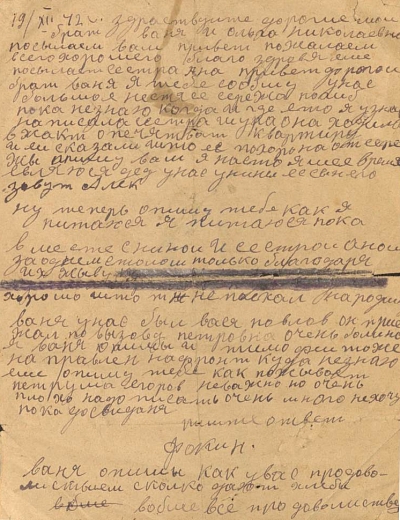 19/XII 42 г. здраствуйте дорогие мои
брат ваня и ольга николаевна
посылаем вам привет пожалаем
всего хорошего
посылает сестра анна привет дорогой
брат ваня я тебе сообщу у нас
большое нестя се сережа помер
пока незнаю когда и где ето я узнал
написала сестра шура она ходила
в жакт опечятват квартиру
и ей сказали што ее похорона от сере
жы опишу вам я настоящее время
дед у нас у нины
зовут Алек
ну теперь опишу тебе как я
питаюся я питаюся пока
вместе с ниной и сестрой аной
за однем столом только благодаря
их жыву
хорошо што не поехал
ваня у нас был вася павлов он прие
жал по вызову петровна очень больна
я ваня
на правлен на фронт куда незнаю
еше опишу тебе как пожывает
петруша егоров неважно но очень
плохо надо писать очень много нехочу
пока досвиданя
пишите ответ
Фокин.
ваня опишы как у вас продово-
лствыем сколко дают хлеба
вобше всё продоволствие